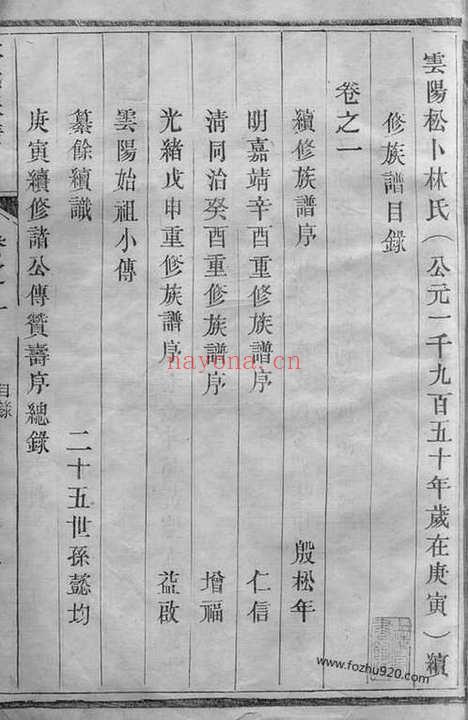 雲陽松卜林氏（公元一千九百五十年歲在庚寅）續
修族譜目錄
卷之一
續修族譜序 殷松年
明嘉靖辛酉重修族譜序 仁信
清同治癸酉重修族譜序 增福
光緒戊申重修族譜序 益啟
雲陽始祖小傳
纂餘續識 二十五世孫懿均
庚寅續修諸公傳贊壽序總錄
目錄
hayona.cn
www.fozhu920.com